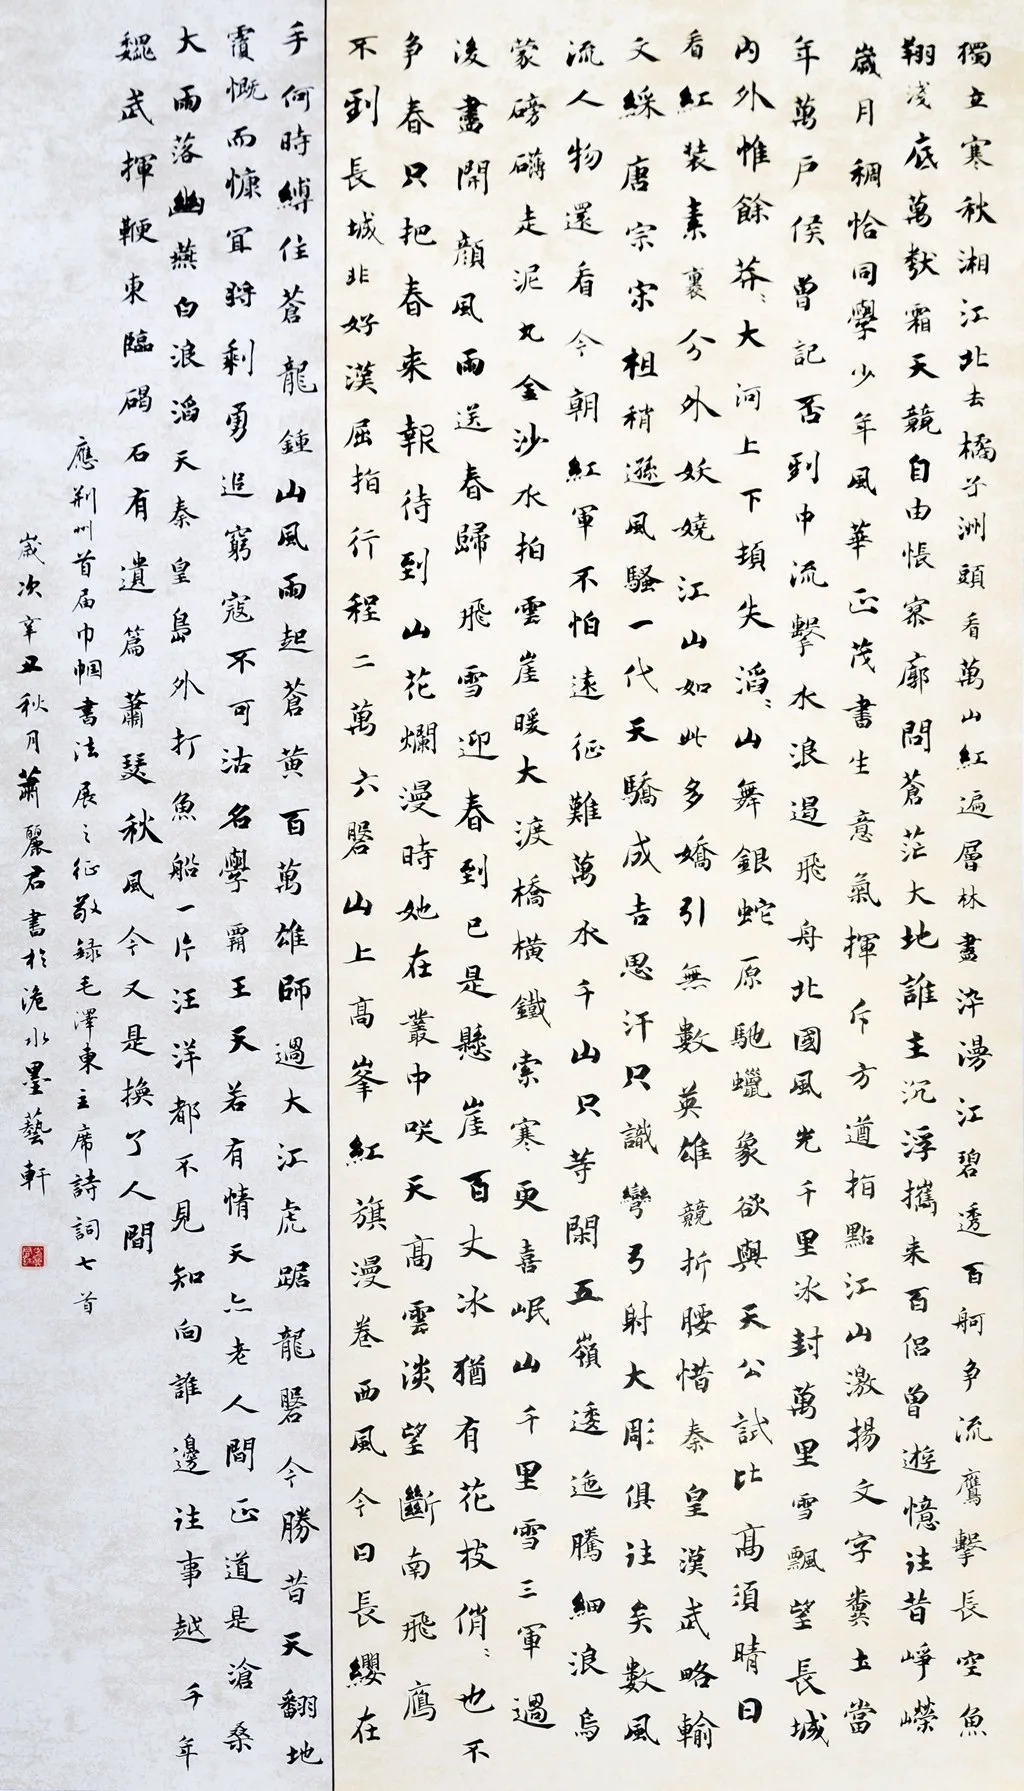 獨立寒秋湘江北去橘子洲頭看萬山紅遍層林盡染漫江碧透百舸争流鷹擊長空魚
翔淺底萬類霜天競自由悵寥廓問蒼茫大地誰主沉浮攜来百侣曾遊憶往昔崢嶸
歲月稠恰同學少年風華正茂書生意氣揮斥方遒指點江山激揚文字糞土當
年萬户侯曾記否到中流擊水浪遏飛舟北國風光千里冰封萬里雪飄望長城
内外惟餘莽〻大河上下頓失滔〻山舞銀蛇原馳蠟象欲與天公試比高須晴日
看紅装素裹分外妖嬈江山如此多嬌引無數英雄競折腰惜秦皇漢武略輸
文綵唐宗宋祖稍遜風騷一代天驕成吉思汗只識彎弓射大彫俱往矣數風
流人物還看今朝紅軍不怕遠征難萬水千山只等閑五嶺逶迤騰細浪烏
蒙磅礴走泥丸金沙水拍雲崖暖大渡橋橫鐵索寒更喜岷山千里雪三軍過
後盡開顔風雨送春歸飛雪迎春到已是懸崖百丈冰猶有花枝俏〻也不
争春只把春来報待到山花爛漫時她在叢中咲天高雲淡望斷南飛鴈
不到長城非好漢屈指行程二萬六磐山上高峯紅旗漫卷西風今日長纓在
手何時縛住蒼龍鍾山風雨起蒼黄百萬雄師過大江虎踞龍磐今勝昔天翻地
覆慨而慷宜將剩勇追窮寇不可沽名學霸王天若有情天亦老人間正道是滄桑
大雨落幽燕白浪滔天秦皇島外打魚船一片汪洋都不見知向誰邊往事越千年
魏武揮鞭東臨碣石有遺篇蕭瑟秋風今又是换了人間
應荆州首届巾帼書法展之征敬録毛澤東主席詩詞七首
歲次辛丑秋月蕭麗君書於洈水墨藝軒